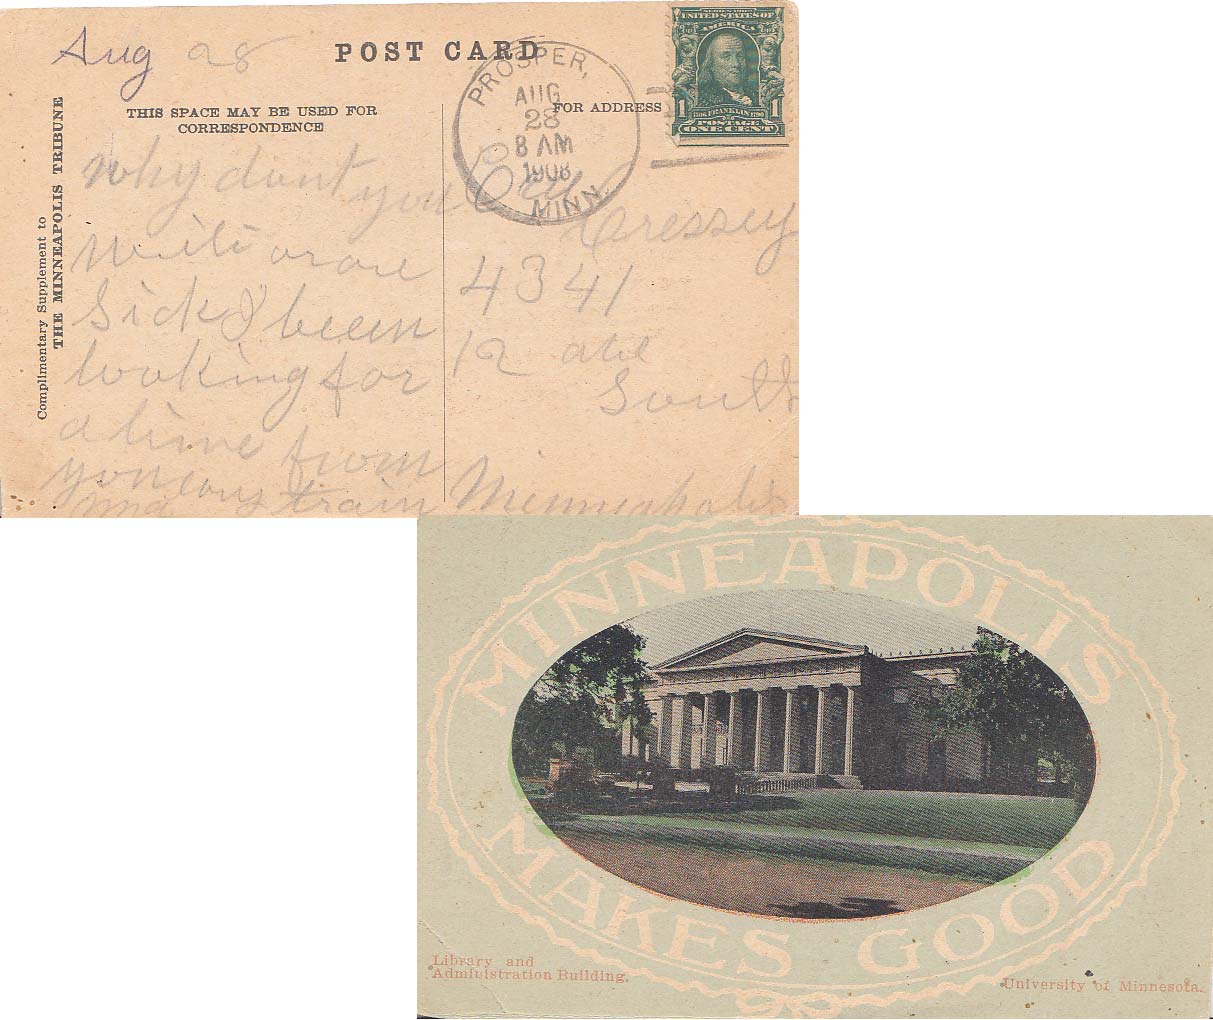 Aug 28
POST CARD
PROSPER,
AUG
28
8 AM
1908
MINN.
SERIES 1902
UNITED STATES OF
AMERICA
1
1
1706 FRANKLIN 1790
POSTAGE
ONE CENT
THIS SPACE MAY BE USED FOR
CORRESPONDENCE
FOR ADDRESS
Complimentary Supplement to
THE MINNEAPOLIS TRIBUNE
Why dont you
write or are
Sick I been
looking for
a line from
you
train
Cressey
4341
12 ave
South
Minneapolis
Minn
MINNEAPOLIS
MAKES GOOD
Library and
Administration Building.
University of Minnesota.